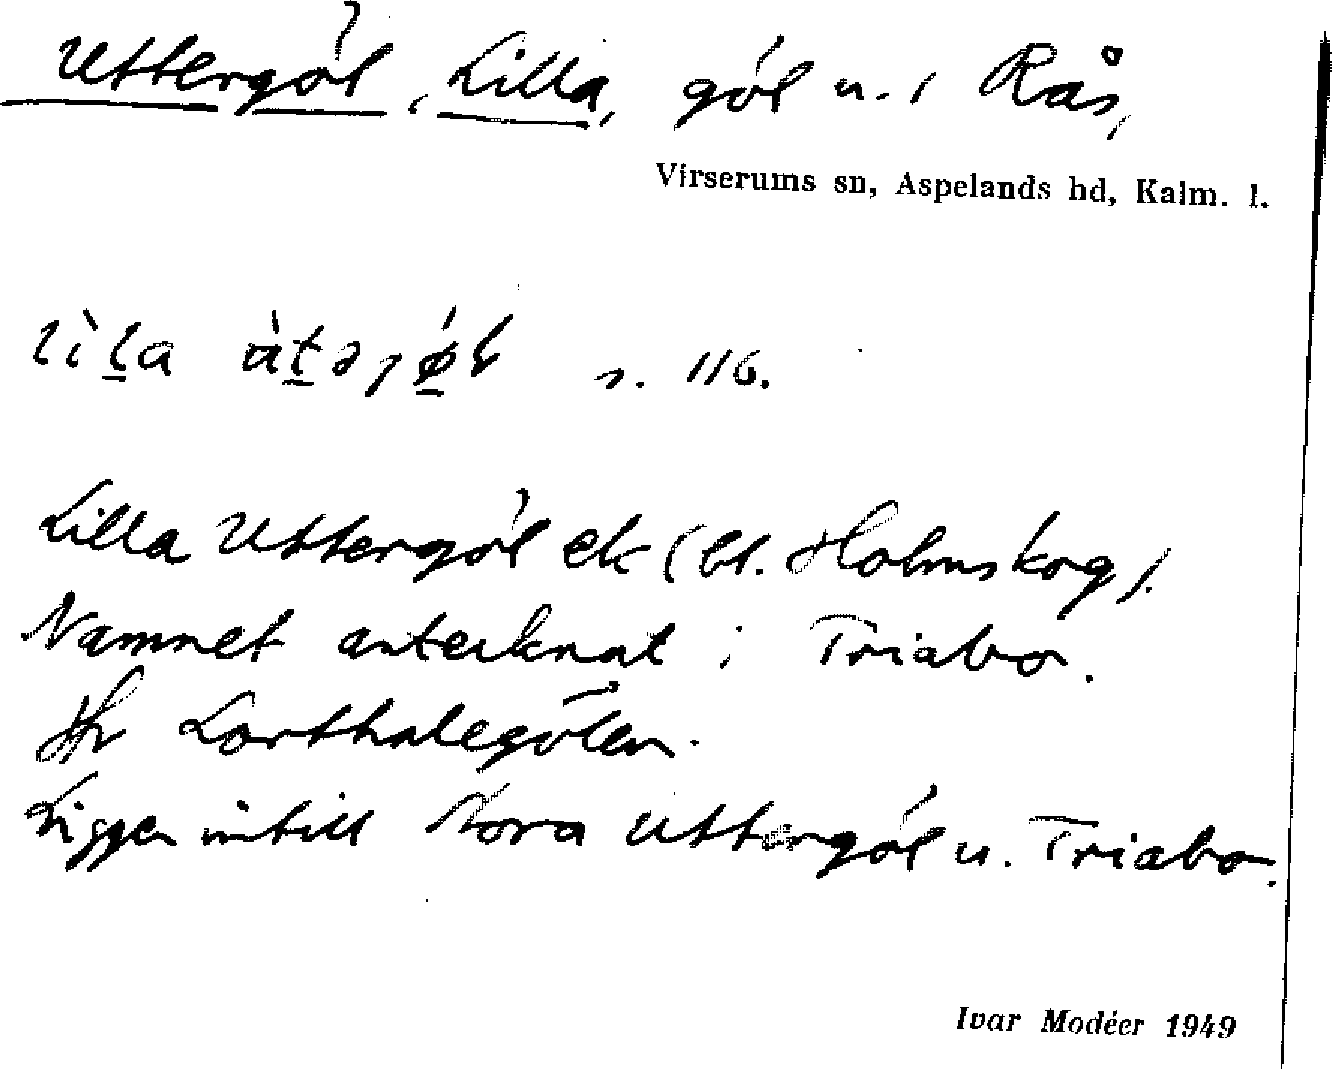 Uttergöl, Lilla, göl u. 1 Rås,
Virserums sn, Aspelands hd, Kalm. l.
s. 116.
Lilla Uttergöl ek (bl. Holmskog).
Namnet antecknat i Triabo.
Hr Lorthalegölen.
Ligger intill Stora Uttergöl u. Triabo.
Ivar Modéer 1949